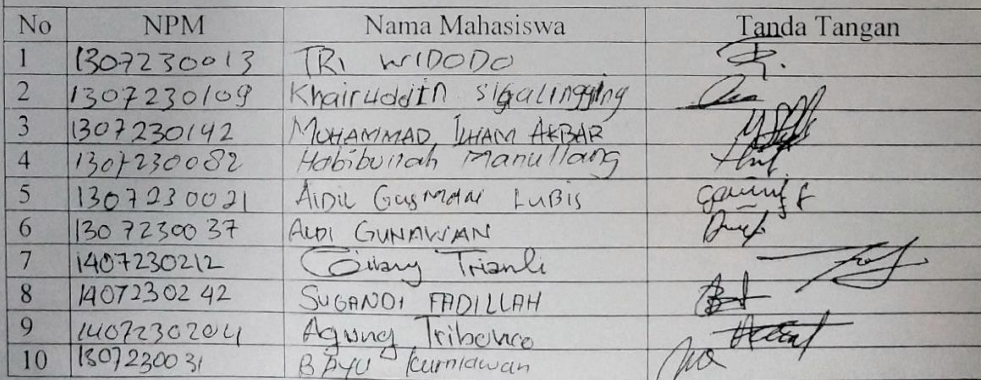 No NPM Nama Mahasiswa Tanda Tangan
1 1307230013 TRI WIDODO
2 1307230109 Khairuddin sigalingging
3 1307230142 MUHAMMAD ILHAM AKBAR
4 1307230082 Habibullah Manullang
5 1307230021 AIDIL Gusmdni LUBIS
6 1307230037 ALDI GUNAWAN
7 1407230212 Gilang Trianli
8 1407230242 SUGANDI FADILLAH
9 1407230204 Agung
10 1307230031 BAYU Kurniawan